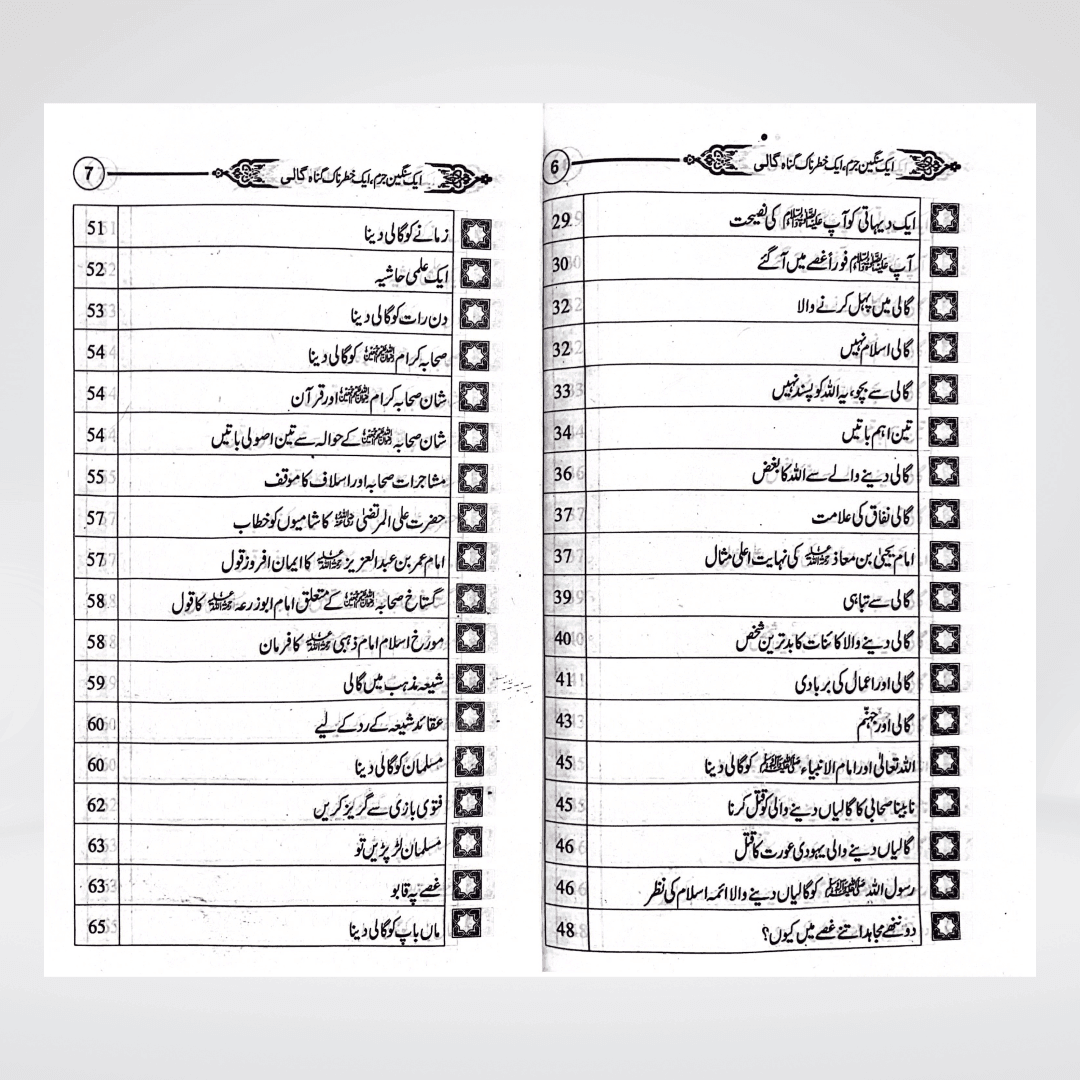 ایک سنگین جرم، ایک خطرناک گناہ گالی 6
ایک دیہاتی کو آپ ﷺ کی نصیحت 29
آپ ﷺ فوراً غصے میں آگئے 30
گالی میں پہل کرنے والا 32
گالی اسلام نہیں 32
گالی سے بچو، یہ اللہ کو پسند نہیں 33
تین اہم باتیں 34
گالی دینے والے سے اللہ کا بغض 36
گالی نفاق کی علامت 37
امام یحییٰ بن معاذ رحمہ اللہ کی نہایت اعلیٰ مثال 37
گالی سے تباہی 39
گالی دینے والا کائنات کا بدترین شخص 40
گالی اور اعمال کی بربادی 41
گالی اور جہنم 43
اللہ تعالیٰ اور امام الانبیاء ﷺ کو گالی دینا 45
نابینا صحابی کا گالیاں دینے والی کو قتل کرنا 45
گالیاں دینے والی یہودی عورت کا قتل 46
رسول اللہ ﷺ کو گالیاں دینے والا ائمہ اسلام کی نظر 46
دو ننھے مجاہد اتنے غصے میں کیوں؟ 48
ایک سنگین جرم، ایک خطرناک گناہ گالی 7
زمانے کو گالی دینا 51
ایک علمی حاشیہ 52
دن رات کو گالی دینا 53
صحابہ کرام رضی اللہ عنہم کو گالی دینا 54
شان صحابہ کرام رضی اللہ عنہم اور قرآن 54
شان صحابہ رضی اللہ عنہم کے حوالہ سے تین اصولی باتیں 54
مشاجرات صحابہ اور اسلاف کا موقف 55
حضرت علی المرتضیٰ رضی اللہ عنہ کا شامیوں کو خطاب 57
امام عمر بن عبدالعزیز رحمہ اللہ کا ایمان افروز قول 57
گستاخ صحابہ رضی اللہ عنہم کے متعلق امام ابوزرعہ رحمہ اللہ کا قول 58
مورخ اسلام امام ذہبی رحمہ اللہ کا فرمان 58
شیعہ مذہب میں گالی 59
عقائد شیعہ کے رد کے لیے 60
مسلمان کو گالی دینا 60
فتوی بازی سے گریز کریں 62
مسلمان لڑ پڑیں تو 63
غصے پہ قابو 63
ماں باپ کو گالی دینا 65